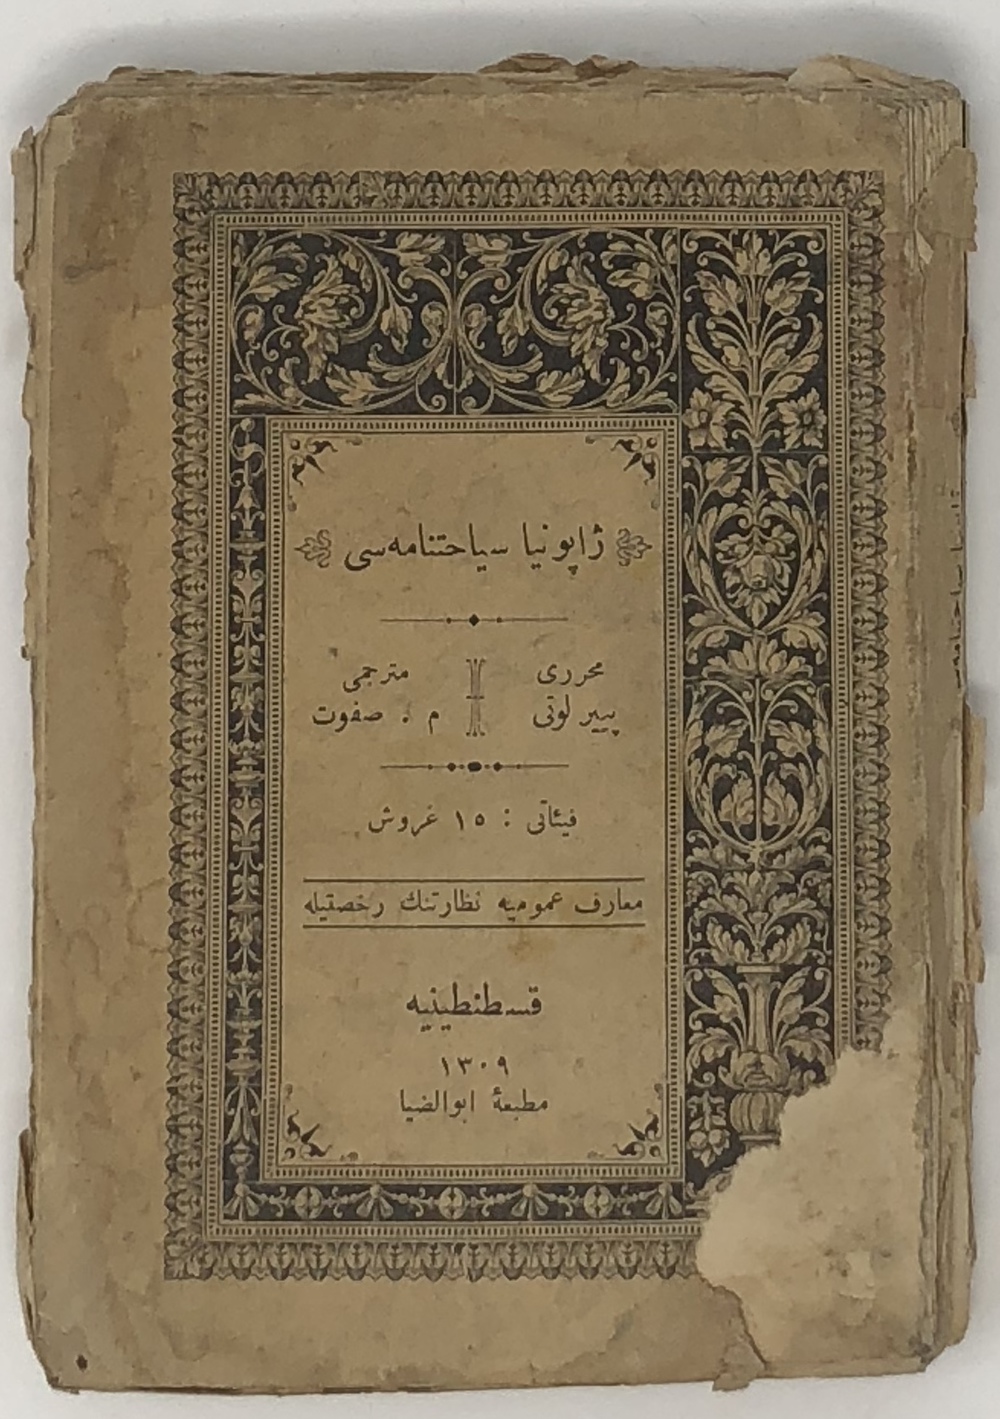 ژاپونیا سیاحتنامه‌سی
محرری
پییر لوتی
مترجمی
م . صفوت
فیئاتی : ١٥ غروش
معارف عمومیه نظارتنك رخصتیله
قسطنطینیه
١٣٠٩
مطبعۀ ابوالضیا